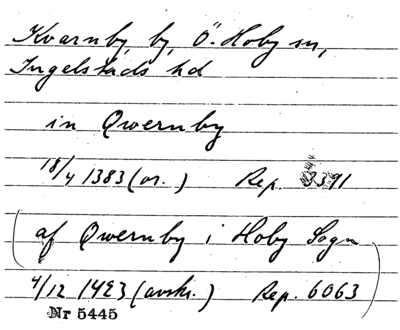 Kvarnby, by, Ö. Hoby sn,
Ingelstads hd
in Qwernby
18/4 1383 (or.) Rep. 3391
(af Qwernby i Hoby Sogn
4/12 1423 (avskr.) Rep. 6063)
Nr 5445